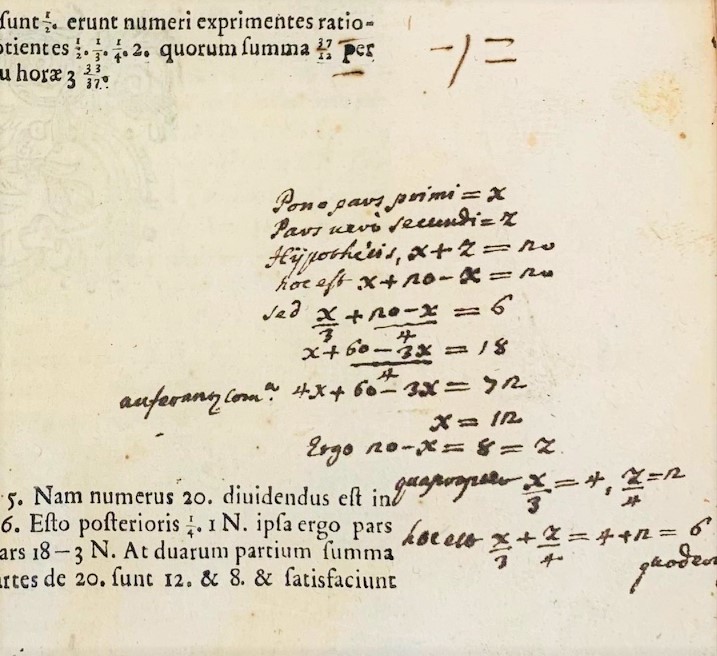 sunt 1/2. erunt numeri exprimentes ratio-
otientes 1/2. 1/3. 1/4. 2. quorum summa 37/12 per
u horæ 3 33/37.
-/=
Pono pars primi = x
Pars verò secundi = z
Hÿpothesis, x + z = 20
hoc est x + 20 - x = 20
sed x/3 + 20-x/4 = 6
x + 60 - 3x/4 = 18
4x + 60 - 3x = 72
x = 12
Ergo 20 - x = 8 = z
quapropter x/3 = 4, z/4 = 2
5. Nam numerus 20. diuidendus est in
6. Esto posterioris 1/4. 1 N. ipsa ergo pars
hoc est x/3 + z/4 = 4 + 2 = 6
ars 18 – 3 N. At duarum partium summa
artes de 20. sunt 12. & 8. & satisfaciunt